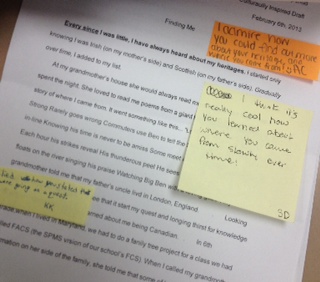 Inspired Draft
Finding Me
February 6th, 2013
Every since I was little, I have always heard about my heritages. I started only
knowing I was Irish (on my mother's side) and Scottish (on my father's side). Gradually
over time, I added to my list.
At my grandmother's house she would always read me
spent the night. She loved to read me poems from a giant
story of where I came from. It went something like this...
Strong Rarely goes wrong Commuters use Ben to tell the
in-line Knowing his time is never to be amiss Some meet
Each hour his strikes reveal His thunderous peel He
floats on the river singing his praise Watching Big Ben
grandmother told me that my father's uncle lived in London, England
Looking
we that it start my quest and longing thirst for knowledge
learned about me being Canadian. In 6th
grade when I lived in Maryland, we had to do a family tree project for a class we had
called FACS (the SPMS vision of our school's FCS). When I called my grandmother
mation on her side of the family, she told me that some of
I admire how
you could find out more
about your heritage, and
where you came from! AC
I think it's
really cool how
you learned about
where you came
from slowly over
time!
SD
KK